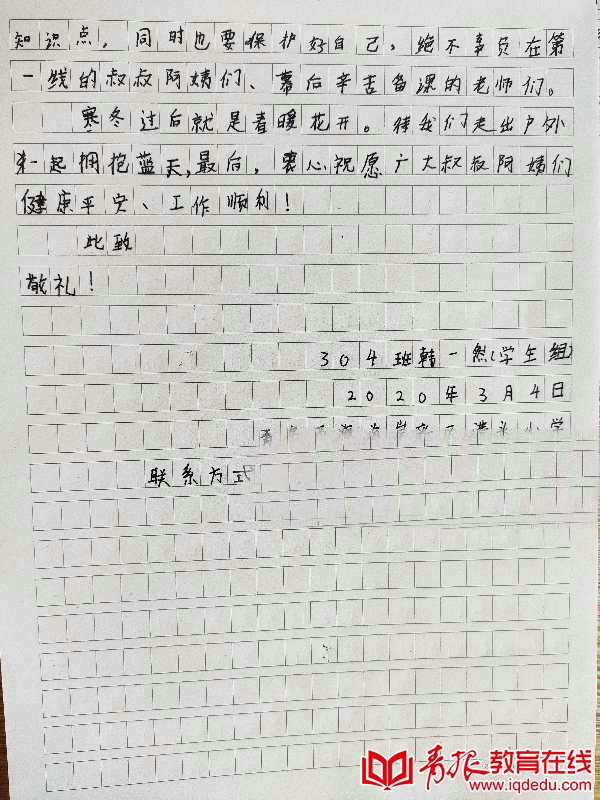 知识点，同时也要保护好自己，绝不辜负在第
一线的叔叔阿姨们、幕后辛苦备课的老师们。
寒冬过后就是春暖花开。待我们走出户外
来一起拥抱蓝天，最后，衷心祝愿广大叔叔阿姨们
健康平安、工作顺利！
此致
敬礼！
304班韩一然(学生组)
2020年3月4日
小学
联系方式
青报教育在线
www.iqdedu.com